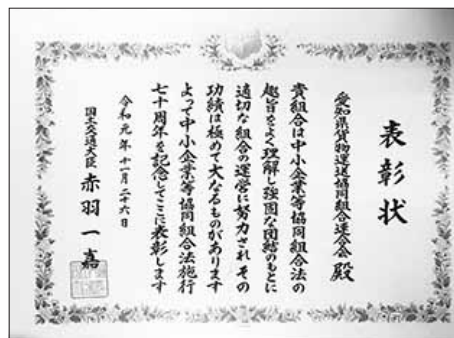 表彰状
愛知県貨物運送協同組合連合会 殿
貴組合は中小企業等協同組合法の
趣旨をよく理解し強固な団結のもとに
適切な組合の運営に努力され その
功績は極めて大なるものがあります
よって中小企業等協同組合法施行
七十周年を記念してここに表彰します
令和元年十一月二十六日
国土交通大臣 赤羽一嘉